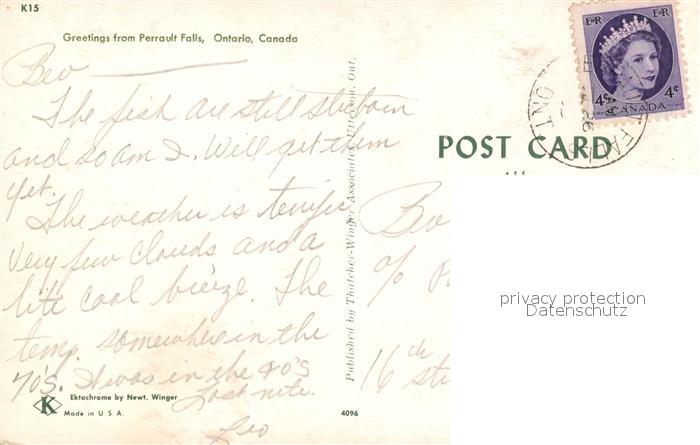 K15
Greetings from Perrault Falls, Ontario, Canada
Bev
The fish are still stuborn
and so am I. Will get them
yet.
The weather is terrific
very few clouds and a
lite cool breize. The
temp. somewhere in the
70's. It was in the 40's
last nite.
Geo
Ektachrome by Newt. Winger
Made in U S A.
4096
K
Published by Thatcher-Winger Associates, Utterson, Ont.
POST CARD
E R E R
4c 4c
CANADA
ONT
Bev
c/o
16th
privacy protection
Datenschutz